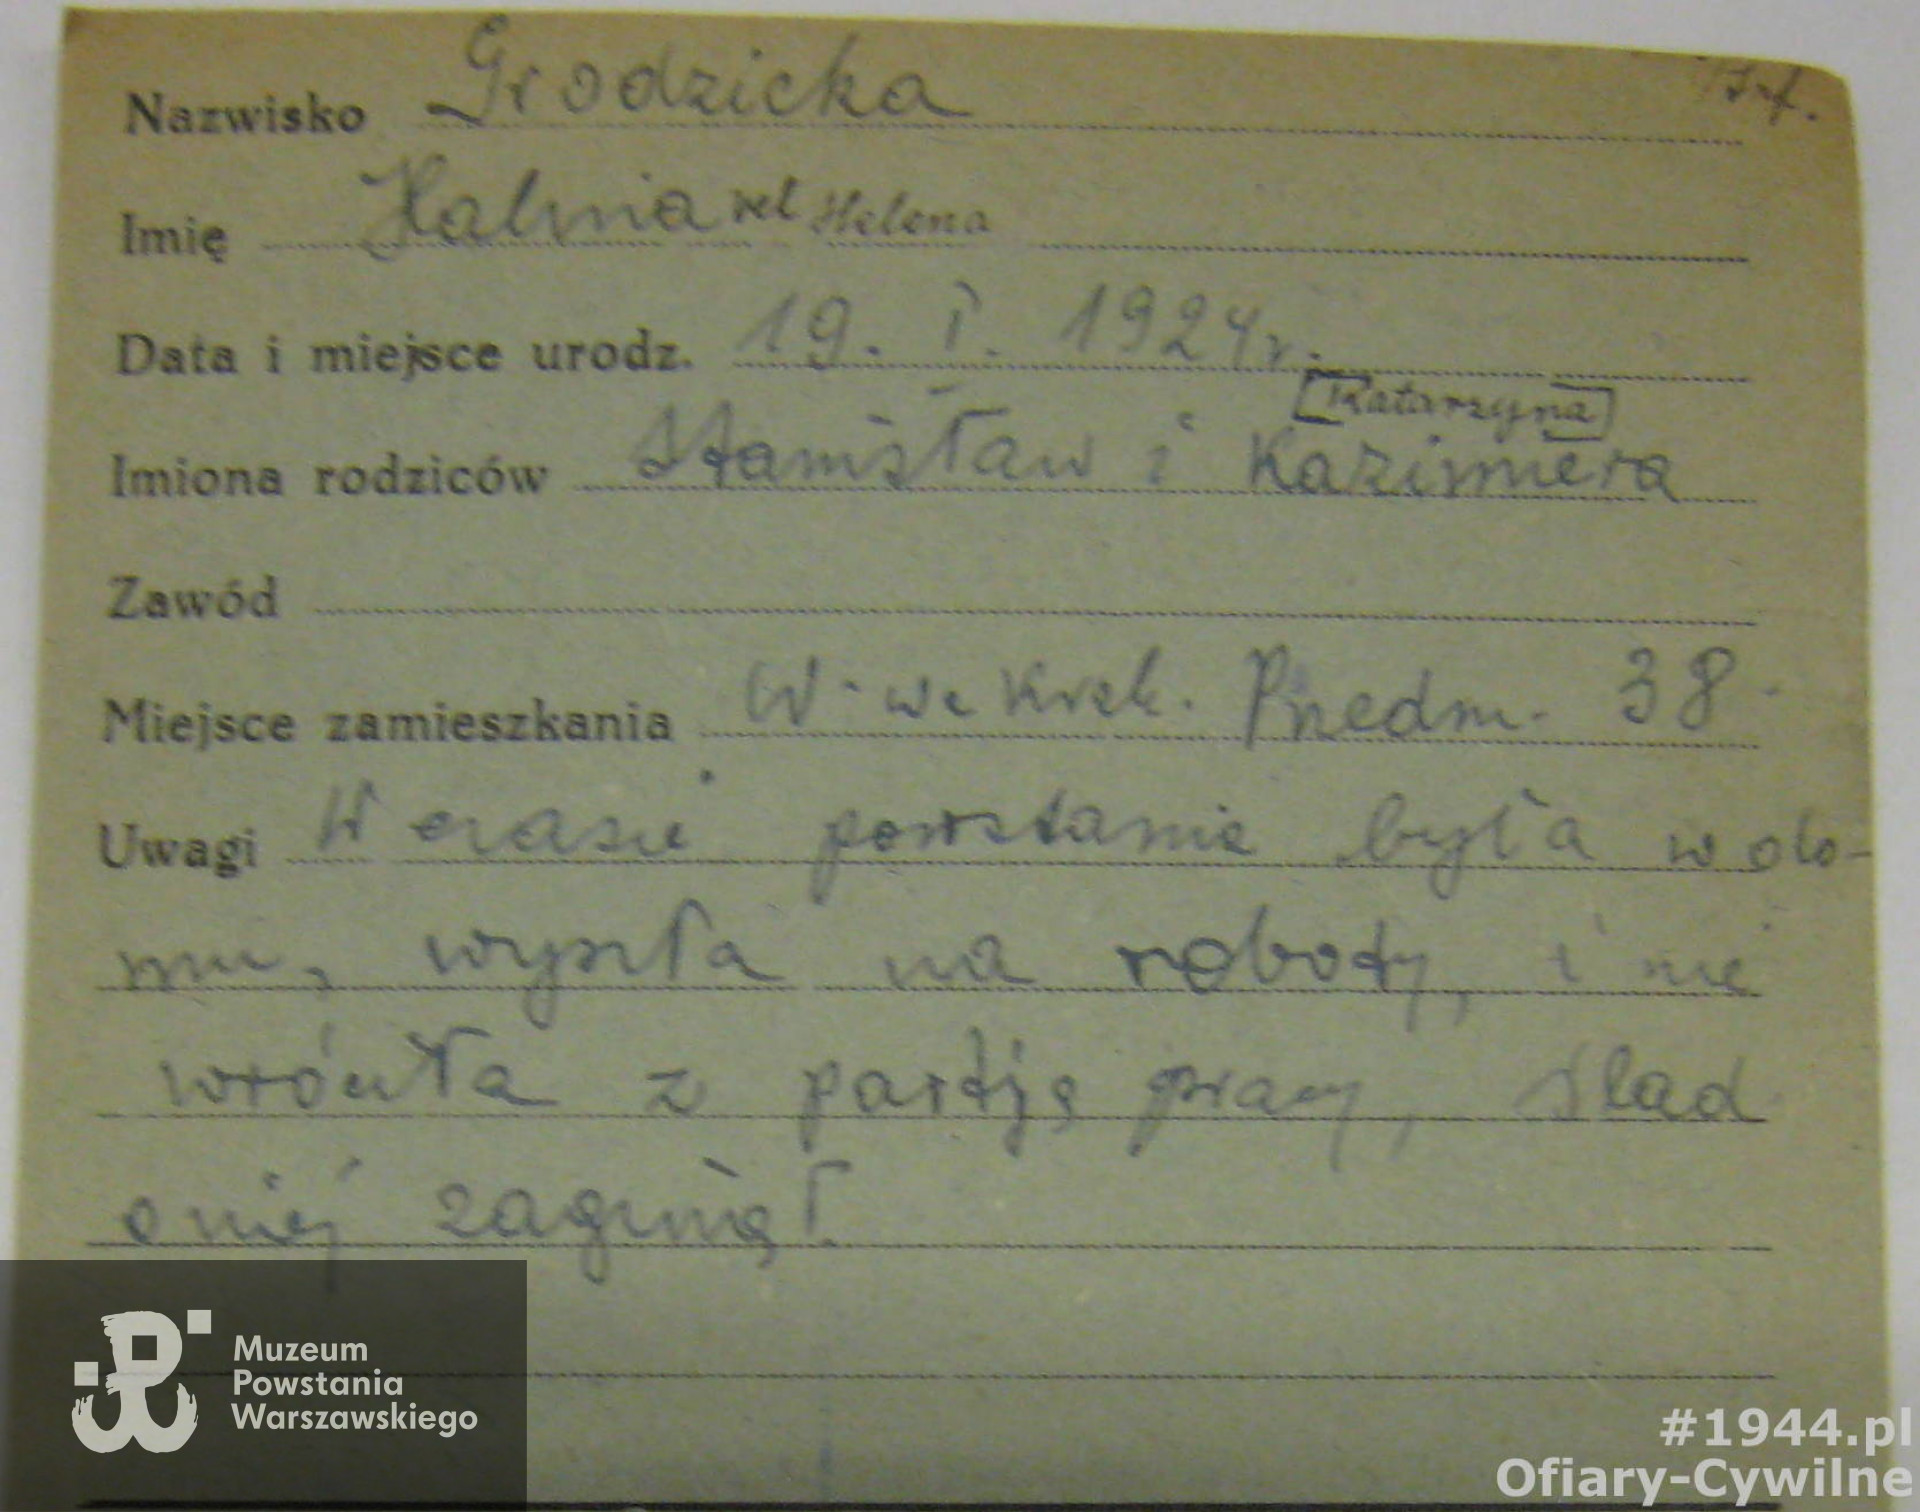 Nazwisko Grodzicka
Imię Halina vel Helena
Data i miejsce urodz. 19. I. 1924r.
[Katarzyna]
Imiona rodziców Stanisław i Kazimiera
Zawód
Miejsce zamieszkania W-wa Krak. Przedm. 38
Uwagi W czasie powstania była w do-
mu, wyszła na roboty, i nie
wróciła z partją pracy, ślad
o niej zaginął.
Muzeum
Powstania
Warszawskiego
#1944.pl
Ofiary-Cywilne